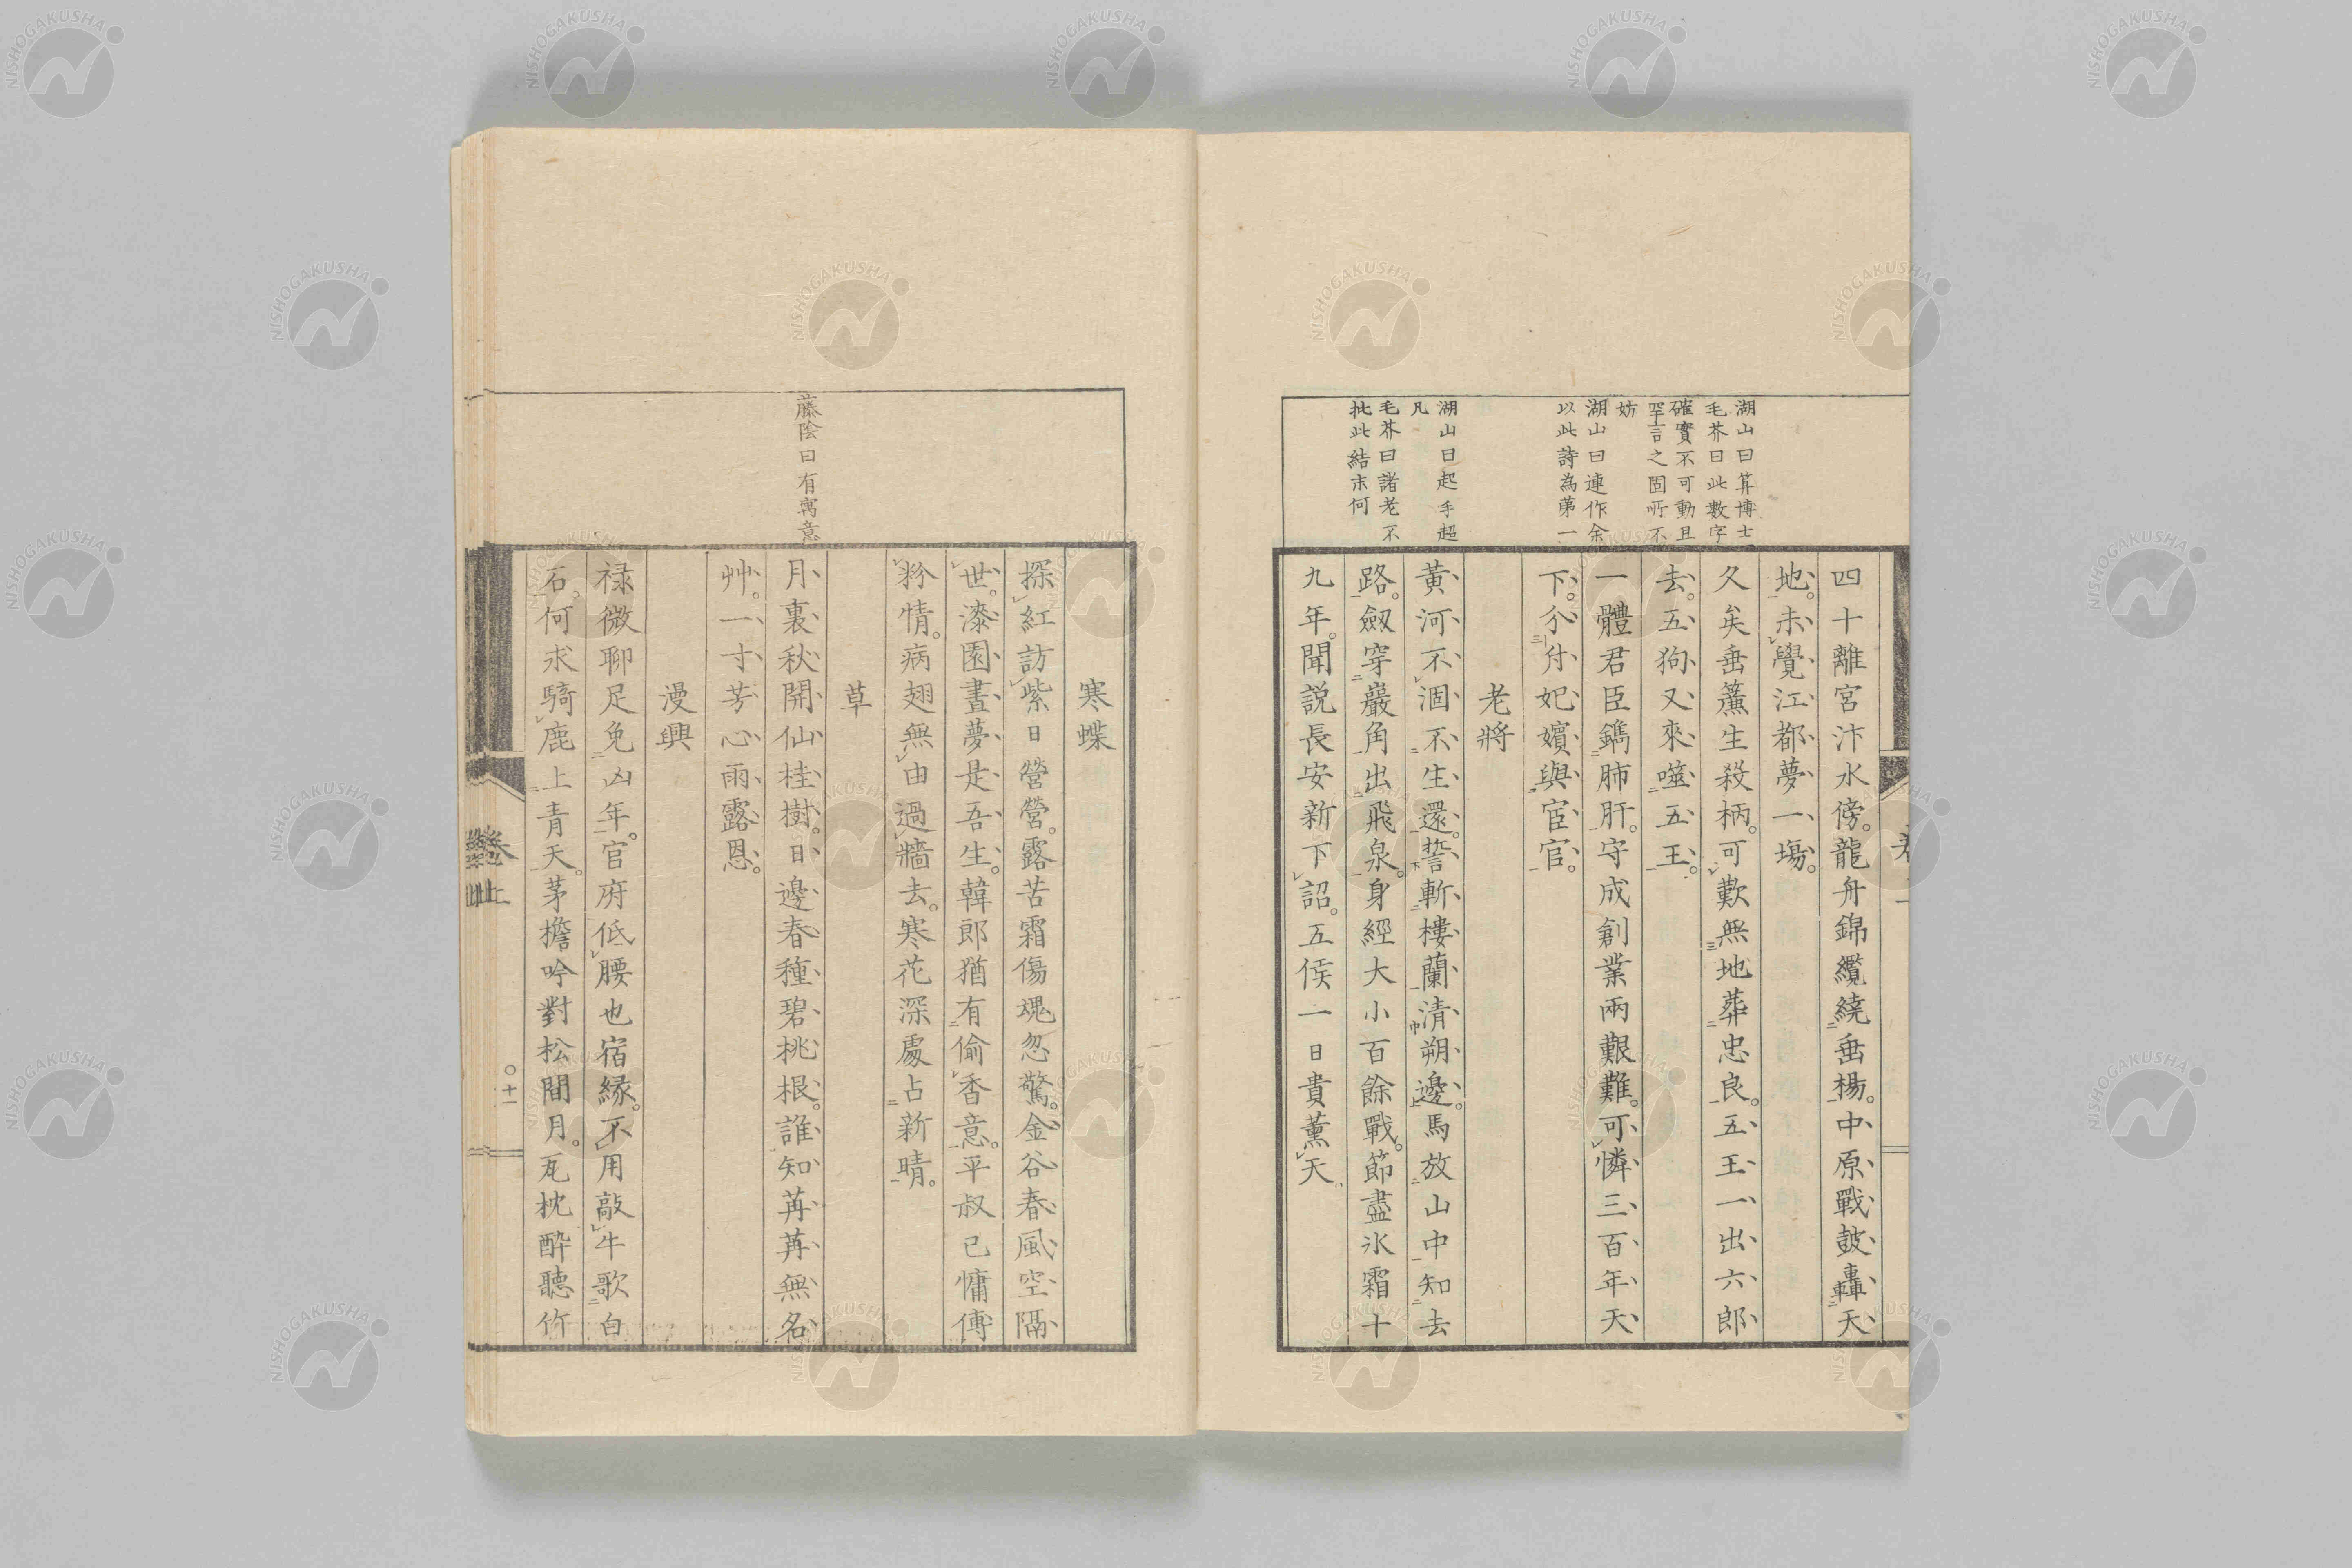 湖山曰算博士
毛芥曰此數字
確實不可動且
罕言之固所不
妨
湖山曰連作余
以此詩為第一
湖山曰起手超
凡
毛芥曰諸老不
批此結末何
四十離宮汴水傍。龍舟錦纜繞垂楊。中原戰鼓轟天
地。未覺江都夢一場。
久矣垂簾生殺柄。可歎無地葬忠良。五王一出六郎
去。五狗又來噬五王。
一體君臣鐫肺肝。守成創業兩艱難。可憐三百年天
下。分付妃嬪與宦官。
老將
黃河不涸不生還。誓斬樓蘭清朔邊。馬放山中知去
路。劔穿巖角出飛泉。身經大小百餘戰。節盡氷霜十
九年。聞説長安新下詔。五侯一日貴薰天
藤陰曰有寓意
寒蝶
探紅訪紫日營營。露苦霜傷魂忽驚。金谷春風空隔
世。漆園晝夢是吾生。韓郎猶有偷香意。平叔已慵傅
粉情。病翅無由過牆去。寒花深處占新晴。
草
月裏秋開仙桂樹。日邊春種碧桃根。誰知苒苒無名
艸。一寸芳心雨露恩。
漫興
祿微聊足免凶年。官府低腰也宿緣。不用敲牛歌白
石。何求騎鹿上青天。茅檐吟對松間月。瓦枕醉聽竹
卷上
○十一